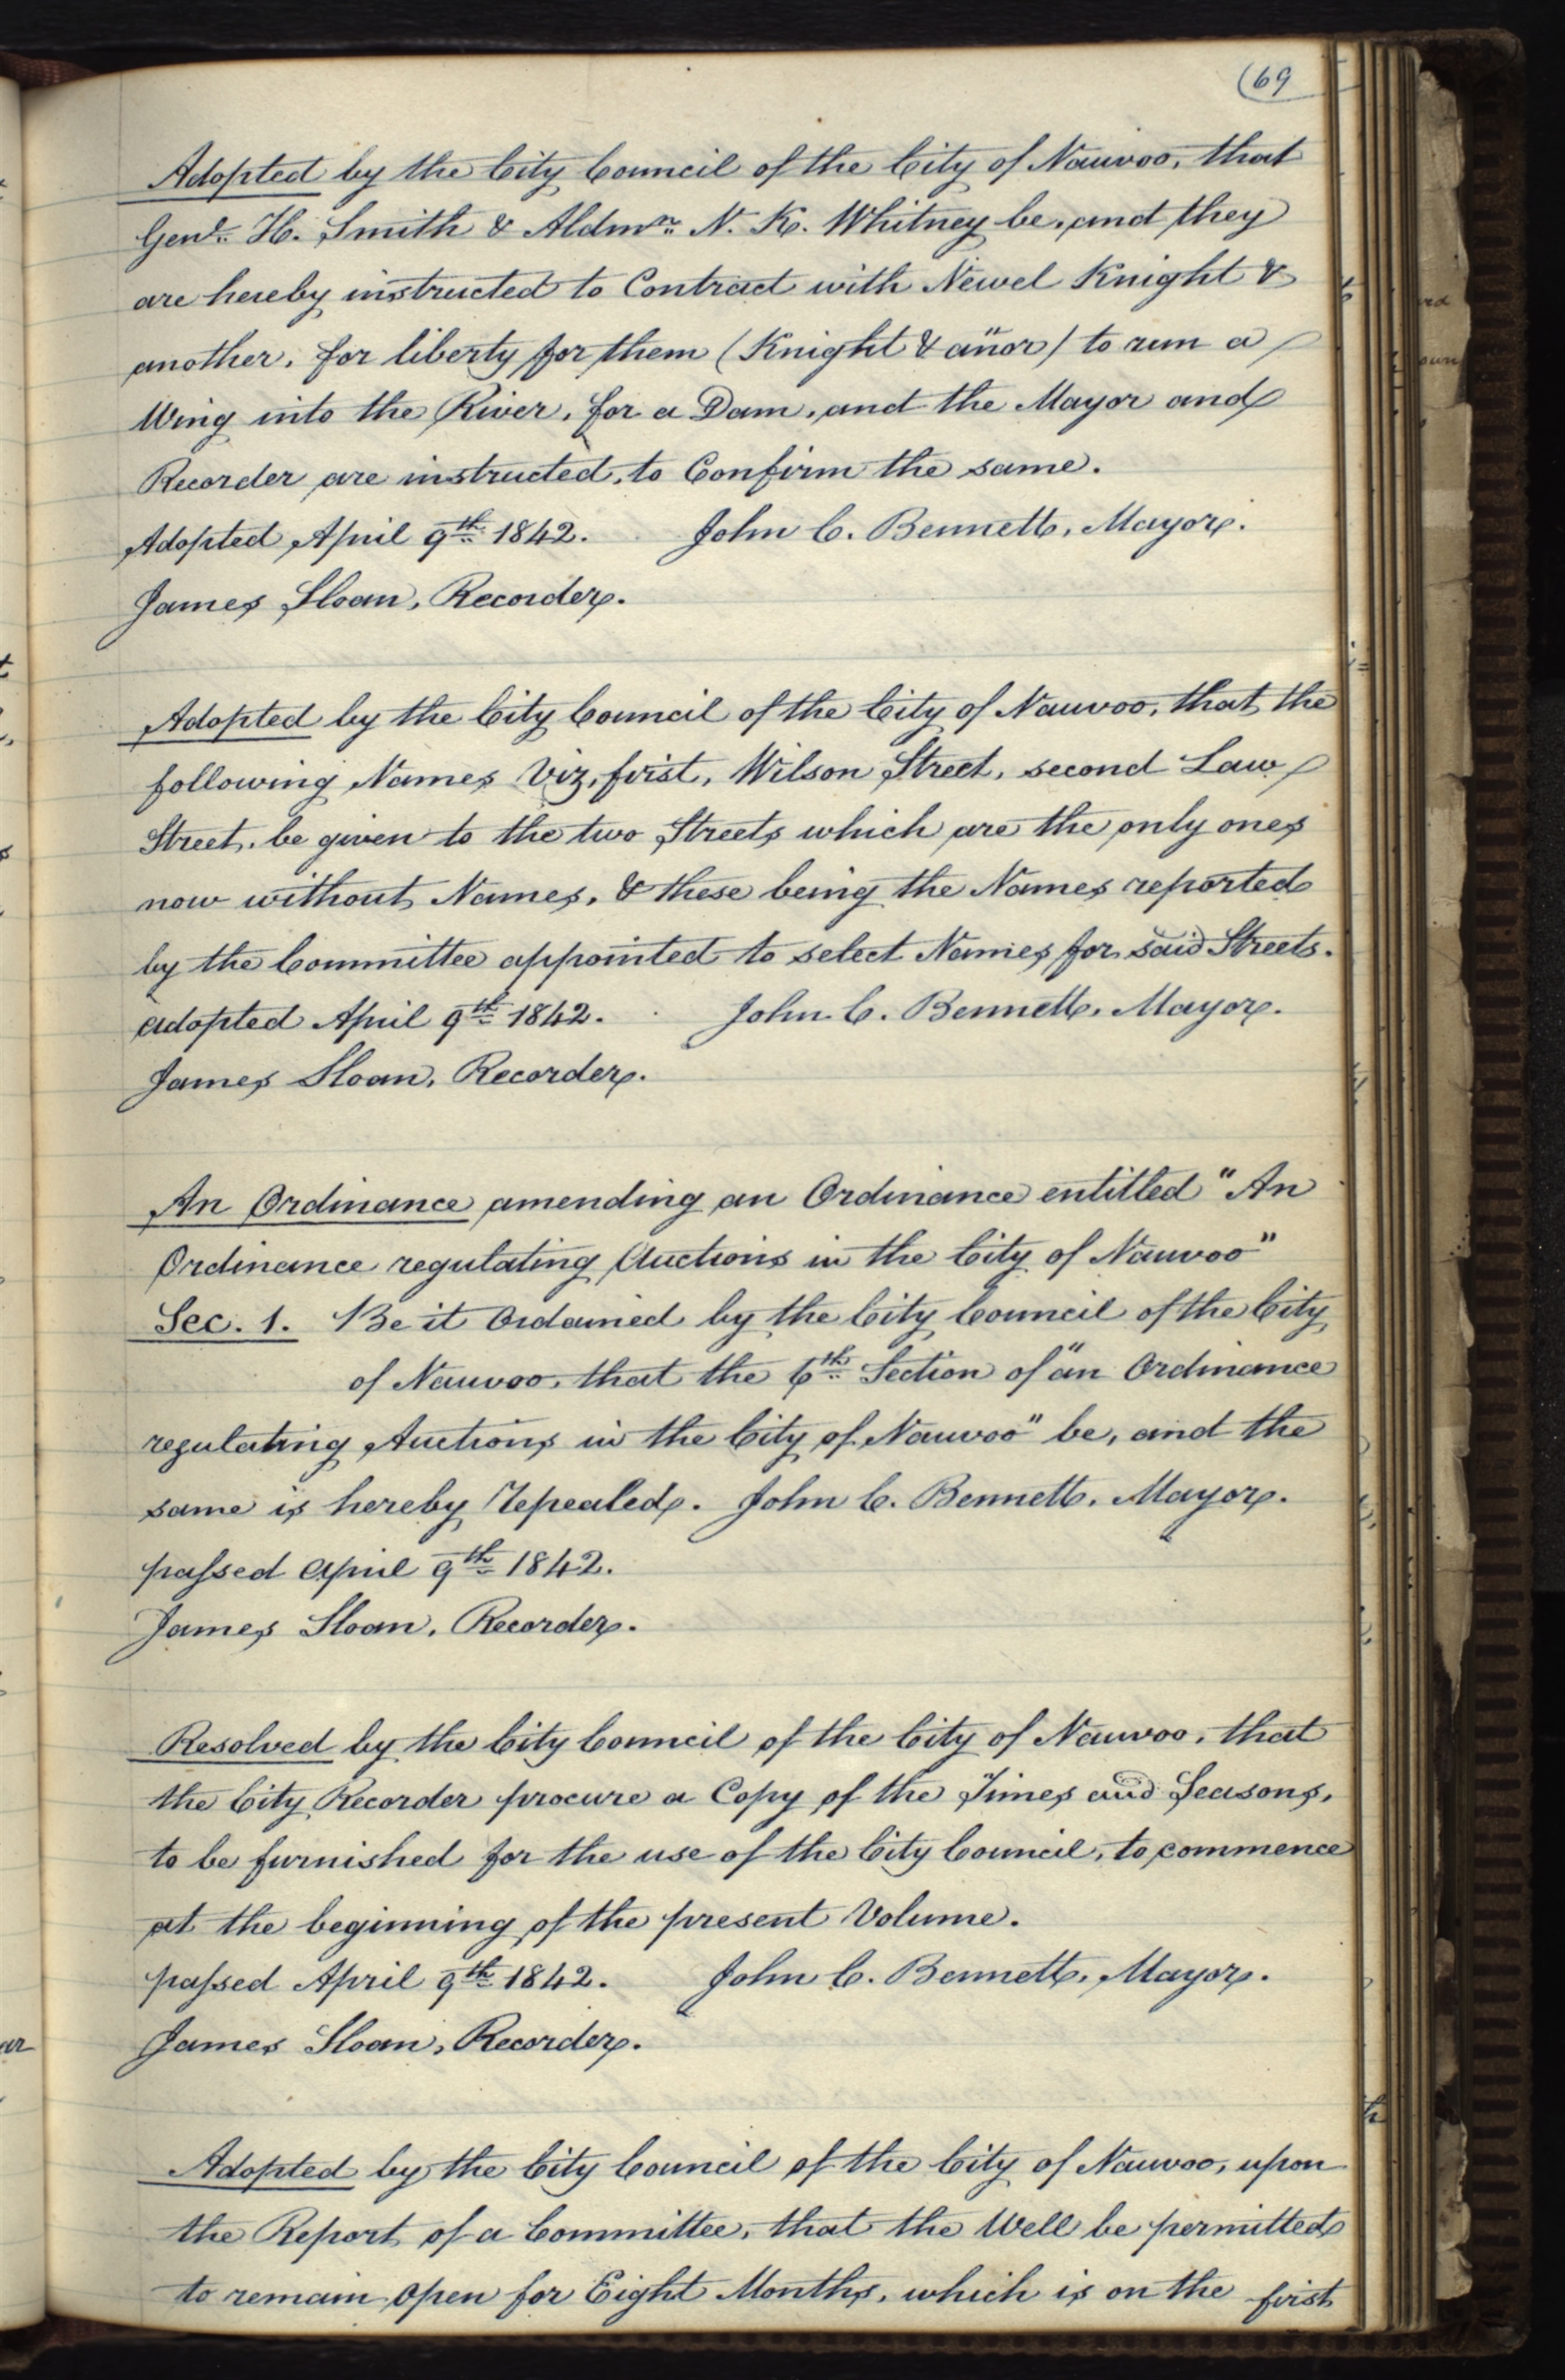 (69
Adopted by the City Council of the City of Nauvoo, that
Genl. H. Smith & Aldmn. N. K. Whitney be, and they
are hereby instructed to Contract with Newel Knight &
another, for liberty for them (Knight & anor) to run a
Wing into the River, for a Dam, and the Mayor and
Recorder are instructed, to Confirm the same.
Adopted April 9th 1842. John C. Bennett, Mayor.
James Sloan, Recorder.
Adopted by the City Council of the City of Nauvoo, that the
following Names Viz, first, Wilson Street, second Law
Street, be given to the two Streets which are the only ones
now without Names, & these being the Names reported
by the Committee appointed to select Names for said Streets.
adopted April 9th 1842. John C. Bennett, Mayor.
James Sloan, Recorder.
An Ordinance amending an Ordinance entitled "An
Ordinance regulating Auctions in the City of Nauvoo"
Sec. 1. Be it Ordained by the City Council of the City
of Nauvoo, that the 6th Section of "an Ordinance
regulating Auctions in the City of Nauvoo" be, and the
same is hereby Repealed. John C. Bennett, Mayor.
passed April 9th 1842.
James Sloan, Recorder.
Resolved by the City Council of the City of Nauvoo, that
the City Recorder procure a Copy of the Times and Seasons,
to be furnished for the use of the City Council, to commence
at the beginning of the present Volume.
passed April 9th 1842. John C. Bennett, Mayor.
James Sloan, Recorder.
Adopted by the City Council of the City of Nauvoo, upon
the Report of a Committee, that the Well be permitted
to remain open for Eight Months, which is on the first